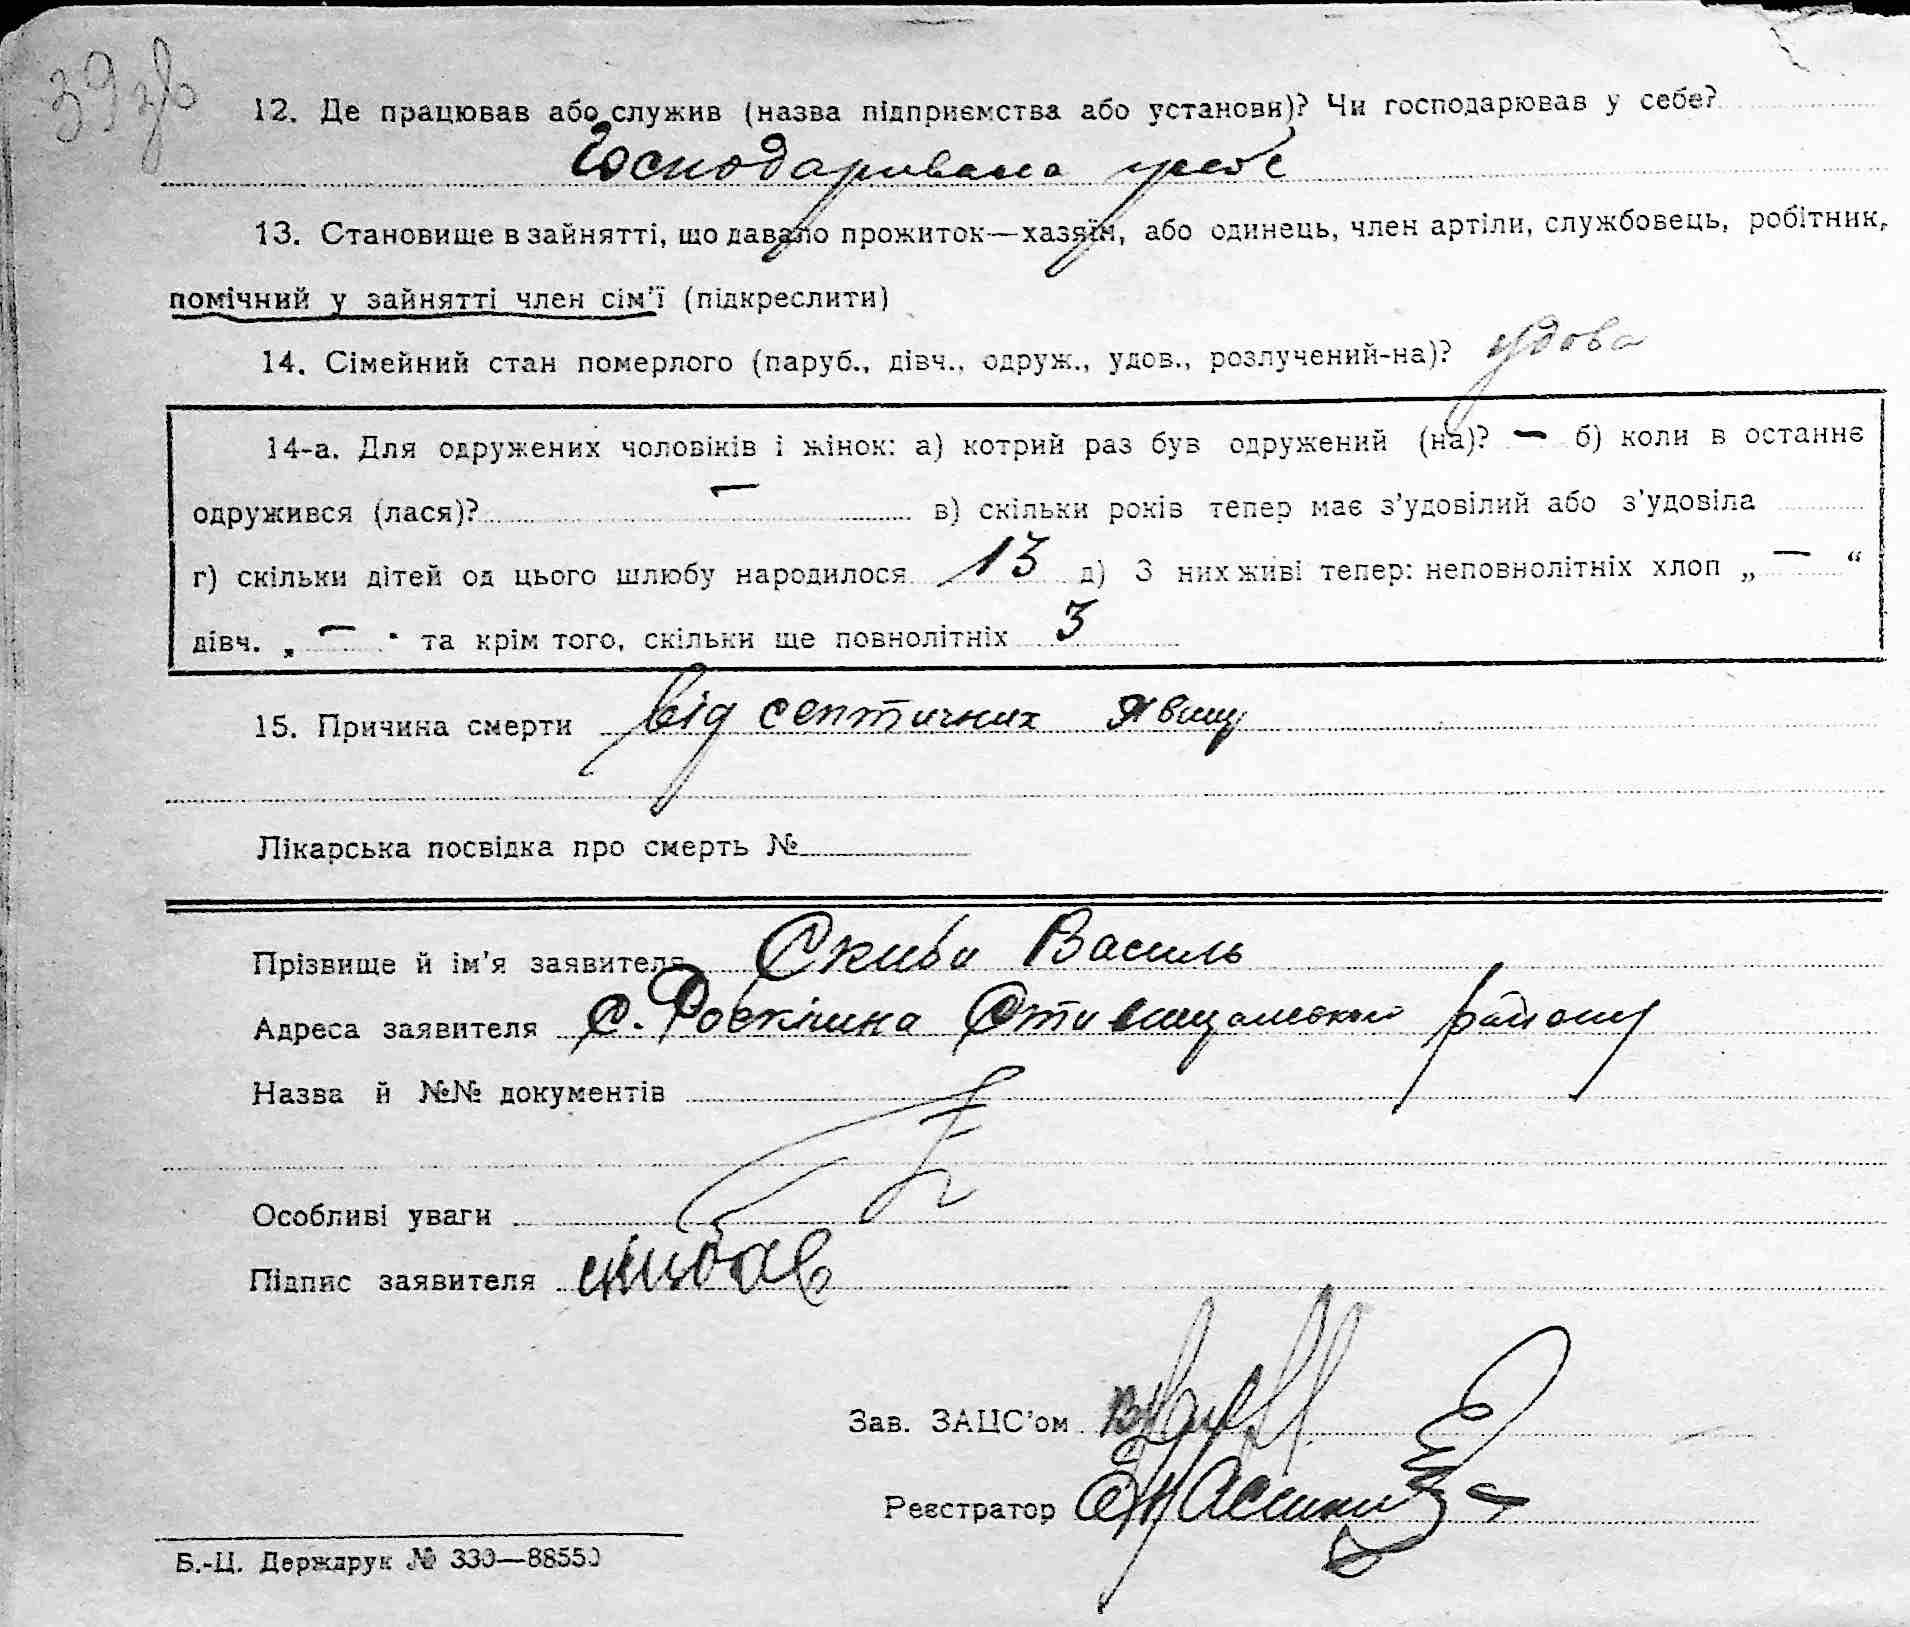 39 зв
12. Де працював або служив (назва підприємства або установи)? Чи господарював у себе?
Господарювала у себе
13. Становище в зайнятті, що давало прожиток—хазяїн, або одинець, член артіли, службовець, робітник,
помічний у зайнятті член сім'ї (підкреслити)
14. Сімейний стан померлого (паруб., дівч., одруж., удов., розлучений-на)? удова
14-а. Для одружених чоловіків і жінок: а) котрий раз був одружений (на)? — б) коли в останнє
одружився (лася)? — в) скільки років тепер має з'удовілий або з'удовіла
г) скільки дітей од цього шлюбу народилося 13 д) З них живі тепер: неповнолітніх хлоп „ — “
дівч. „ — " та крім того, скільки ще повнолітніх 3
15. Причина смерти від септичних явищ
Лікарська посвідка про смерть №
Прізвище й ім'я заявителя Скиба Василь
Адреса заявителя с. Роскішна Ставищанського району
Назва й №№ документів
Особливі уваги
Підпис заявителя скиба в
Зав. ЗАЦС'ом
Реєстратор
Б.-Ц. Держдрук № 330—88550